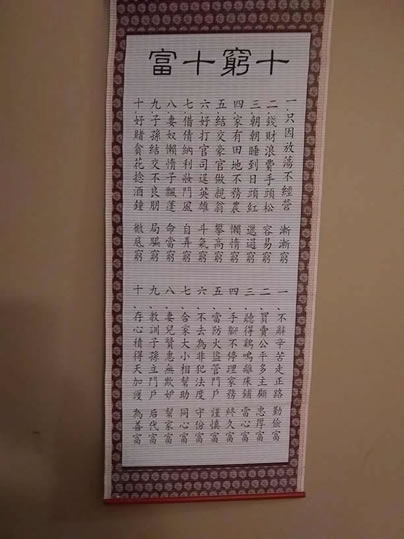 十窮十富
一.只因放蕩不經營 漸漸窮
二.錢財浪費手頭松 容易窮
三.朝朝睡到日頭紅 邋遢窮
四.家有田地不務農 懶惰窮
五.結交豪官做親翁 攀高窮
六.好打官司逞英雄 斗氣窮
七.借債納利妝門風 自弄窮
八.妻奴懶惰子飄蓬 命當窮
九.子孫結交不良朋 局騙窮
十.好賭貪花捻酒鐘 徹底窮
一.不辭辛苦走正路 勤儉富
二.買賣公平多主顧 忠厚富
三.聽得雞鳴離床鋪 當心富
四.手腳不停理家務 終久富
五.當防火盜管門戶 謹慎富
六.不去為非犯法度 守份富
七.合家大小相幫助 同心富
八.妻兒賢惠無欺妒 幫家富
九.教訓子孫立門戶 后代富
十.存心積得天加護 為善富